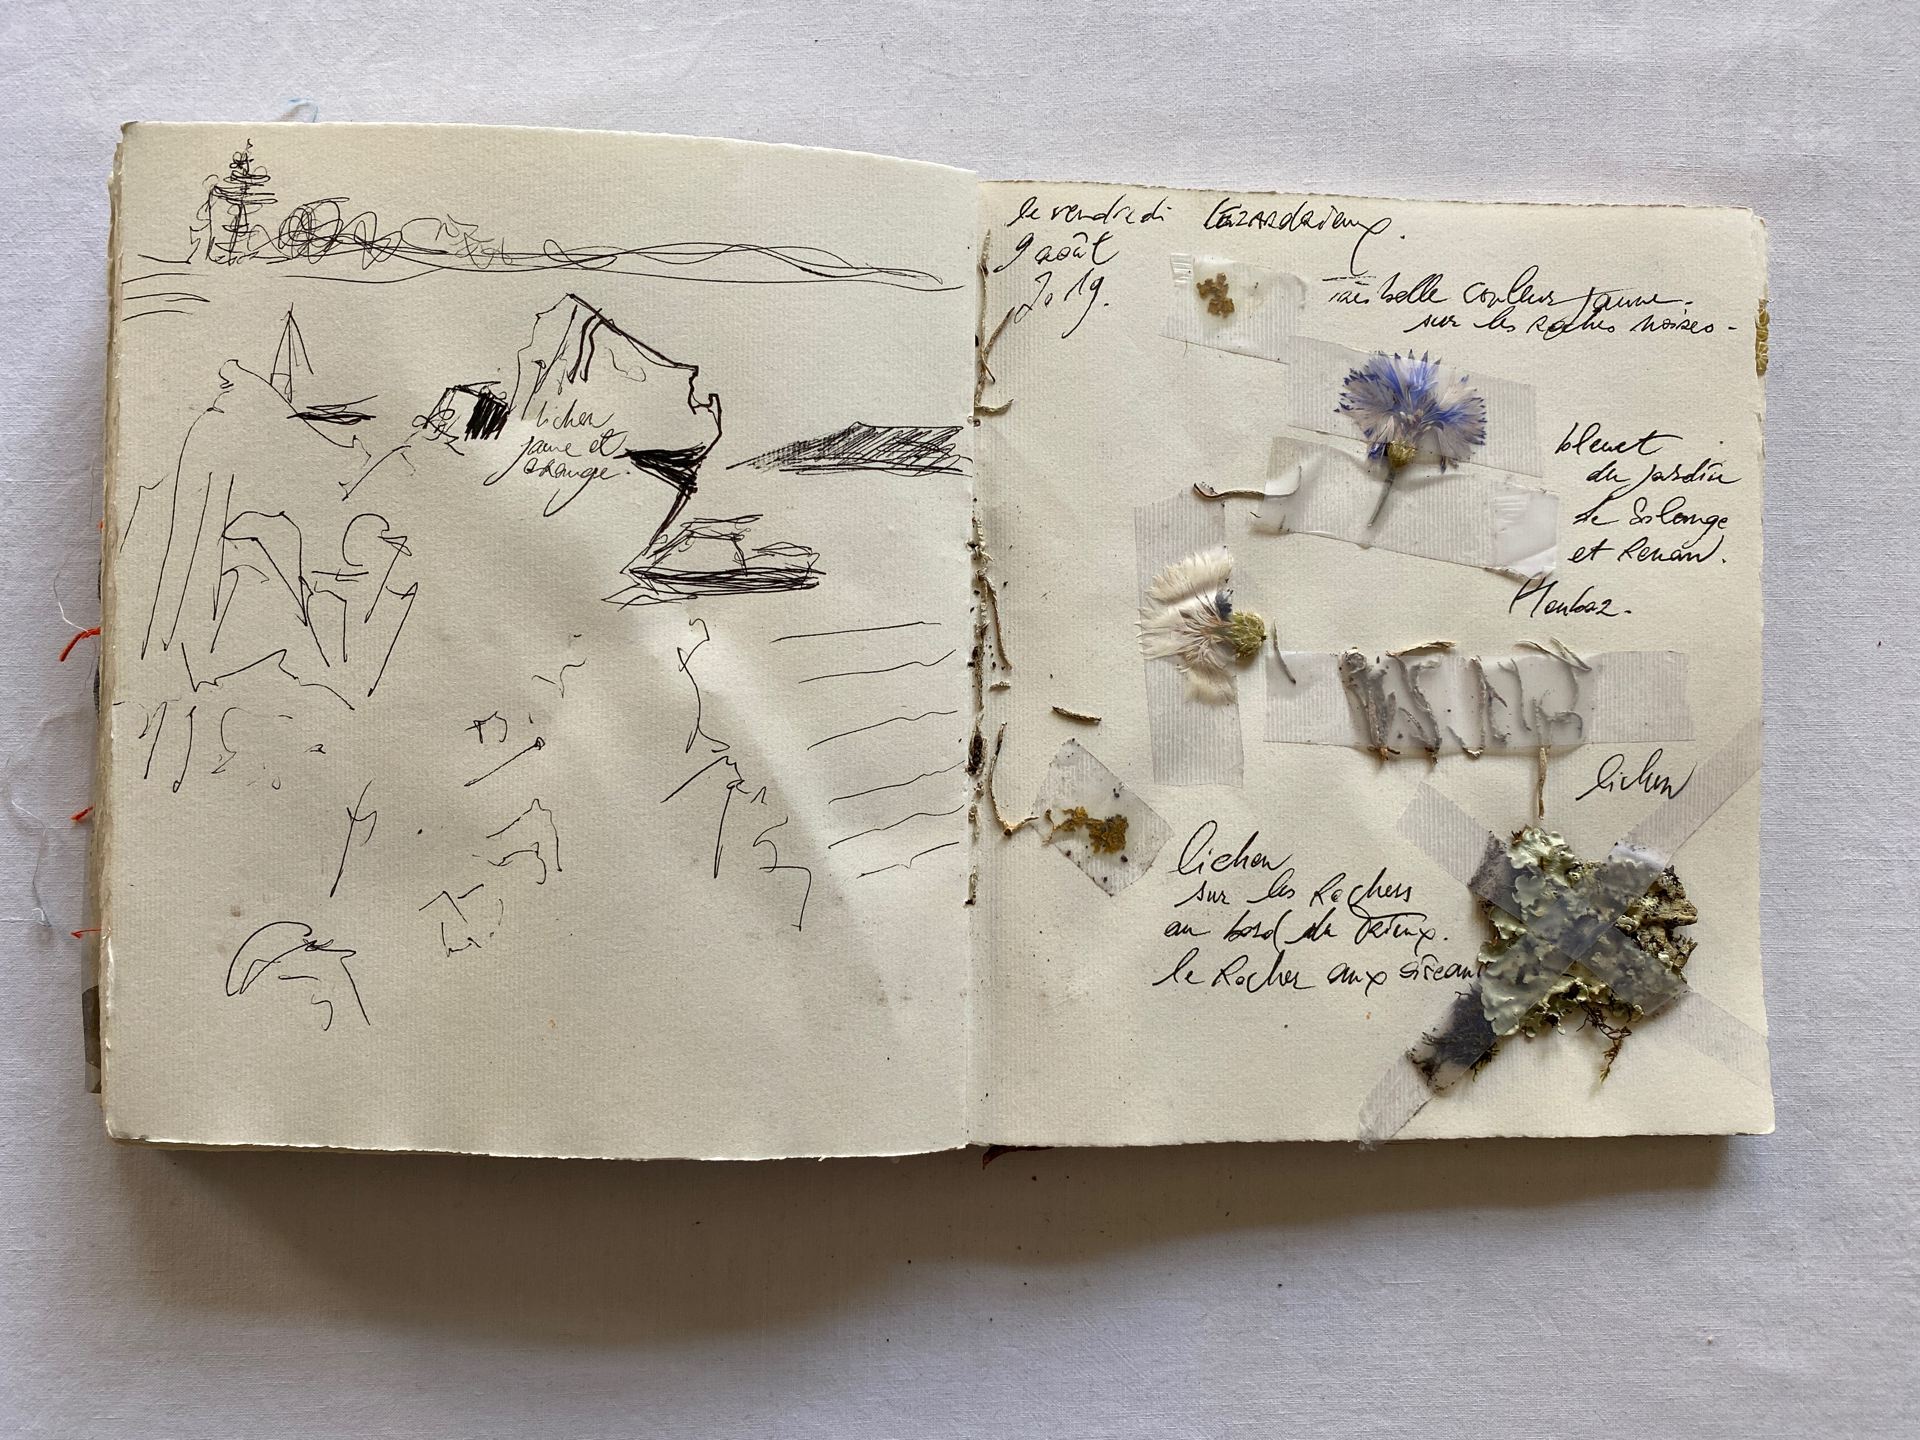 lichen
jaune et
orange.
le vendredi Lézardrieux.
9 août
2019.
très belle couleur jaune.
sur les roches noires -
bleuet
du jardin
de Solange
et Renan.
lichen
lichen
sur les Rochers
au bord du Trieux.
le Rocher aux oiseaux